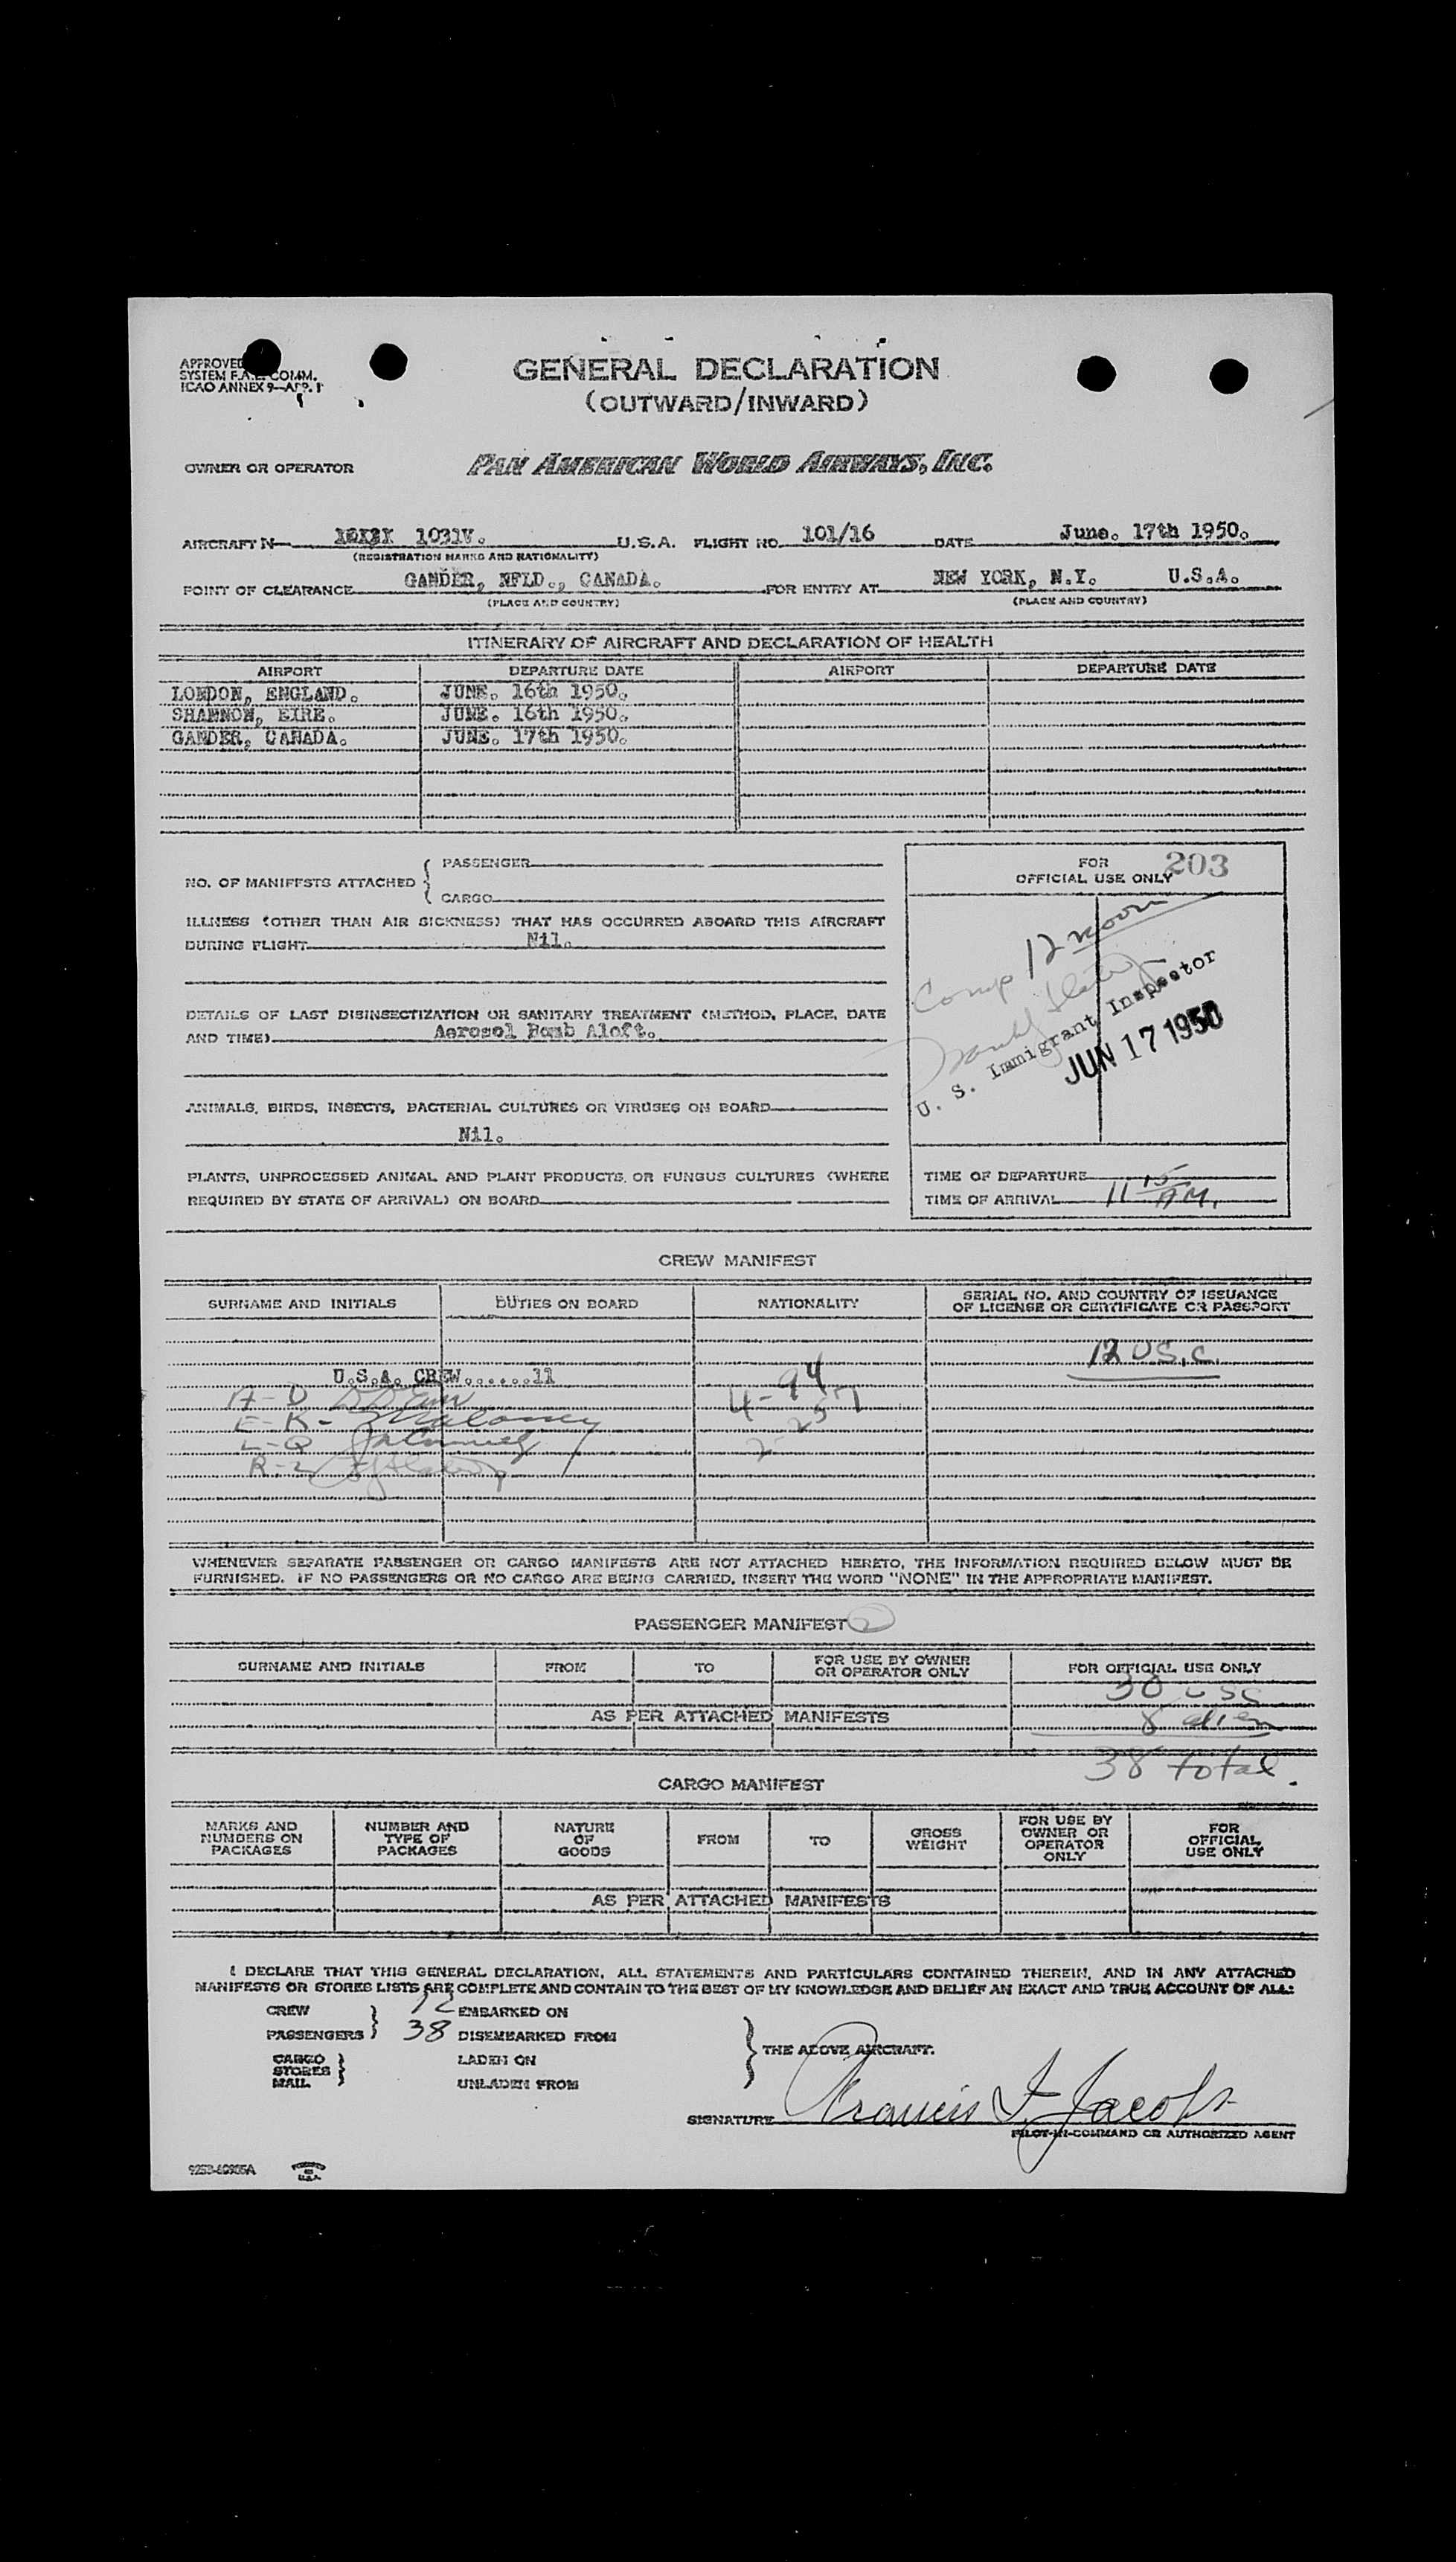 APPROVED
SYSTEM F.A.L. COMM.
ICAO ANNEX 9—APP. 1
GENERAL DECLARATION
(OUTWARD/INWARD)
OWNER OR OPERATOR PAN AMERICAN WORLD AIRWAYS, INC.
AIRCRAFT N— 1031V. U.S.A. FLIGHT NO. 101/16 DATE June. 17th 1950.
(REGISTRATION MARKS AND NATIONALITY)
POINT OF CLEARANCE GANDER, NFLD., CANADA. FOR ENTRY AT NEW YORK, N.Y. U.S.A.
(PLACE AND COUNTRY) (PLACE AND COUNTRY)
ITINERARY OF AIRCRAFT AND DECLARATION OF HEALTH
AIRPORT DEPARTURE DATE AIRPORT DEPARTURE DATE
LONDON, ENGLAND. JUNE. 16th 1950.
SHANNON, EIRE. JUNE. 16th 1950.
GANDER, CANADA. JUNE. 17th 1950.
NO. OF MANIFESTS ATTACHED { PASSENGER
CARGO
ILLNESS (OTHER THAN AIR SICKNESS) THAT HAS OCCURRED ABOARD THIS AIRCRAFT
DURING FLIGHT Nil.
DETAILS OF LAST DISINSECTIZATION OR SANITARY TREATMENT (METHOD, PLACE, DATE
AND TIME) Aerosol Bomb Aloft.
ANIMALS, BIRDS, INSECTS, BACTERIAL CULTURES OR VIRUSES ON BOARD
Nil.
PLANTS, UNPROCESSED ANIMAL AND PLANT PRODUCTS, OR FUNGUS CULTURES (WHERE
REQUIRED BY STATE OF ARRIVAL) ON BOARD
FOR
OFFICIAL USE ONLY 203
Comp 12 noon
U. S. Immigrant Inspector
JUN 17 1950
TIME OF DEPARTURE
TIME OF ARRIVAL 11 15 AM.
CREW MANIFEST
SURNAME AND INITIALS DUTIES ON BOARD NATIONALITY SERIAL NO. AND COUNTRY OF ISSUANCE
OF LICENSE OR CERTIFICATE OR PASSPORT
12 U.S.C.
U.S.A. CREW......11
A - D 4 - 94
E - K - Maloney 2 257
L - Q
R - Z
WHENEVER SEPARATE PASSENGER OR CARGO MANIFESTS ARE NOT ATTACHED HERETO, THE INFORMATION REQUIRED BELOW MUST BE
FURNISHED. IF NO PASSENGERS OR NO CARGO ARE BEING CARRIED, INSERT THE WORD "NONE" IN THE APPROPRIATE MANIFEST.
PASSENGER MANIFEST 2
SURNAME AND INITIALS FROM TO FOR USE BY OWNER
OR OPERATOR ONLY FOR OFFICIAL USE ONLY
30 USC
AS PER ATTACHED MANIFESTS 8 alien
38 total.
CARGO MANIFEST
MARKS AND
NUMBERS ON
PACKAGES NUMBER AND
TYPE OF
PACKAGES NATURE
OF
GOODS FROM TO GROSS
WEIGHT FOR USE BY
OWNER OR
OPERATOR
ONLY FOR
OFFICIAL
USE ONLY
AS PER ATTACHED MANIFESTS
I DECLARE THAT THIS GENERAL DECLARATION, ALL STATEMENTS AND PARTICULARS CONTAINED THEREIN, AND IN ANY ATTACHED
MANIFESTS OR STORES LISTS ARE COMPLETE AND CONTAIN TO THE BEST OF MY KNOWLEDGE AND BELIEF AN EXACT AND TRUE ACCOUNT OF ALL:
CREW 12 EMBARKED ON
PASSENGERS } 38 DISEMBARKED FROM
CARGO
STORES
MAIL } LADEN ON
UNLADEN FROM
} THE ABOVE AIRCRAFT.
SIGNATURE Francis J. Jacobs
PILOT-IN-COMMAND OR AUTHORIZED AGENT
PRINTED
IN
U.S.A.